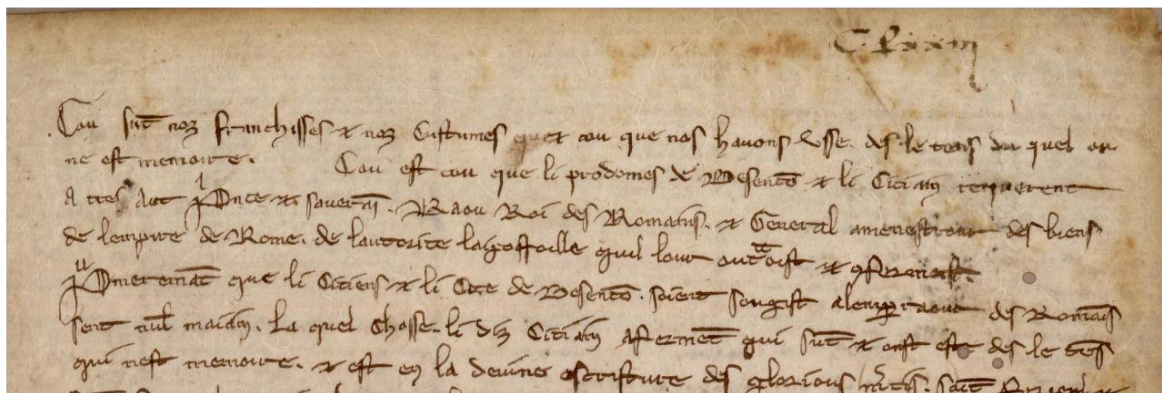 C. lxxiii
Cou sūt noz franchisses ⁊ noz Custumes ⁊ cou que nos hauons vsse. des le tens du quel on
ne est memoire. Cou est cou que li prodomes de Besencō ⁊ li Citiain requerent
A tres Aut Prince ⁊ souerai. Raou Roi des Romains. ⁊ General amenestrour des biens
de lempire de Rome. de lautorite lour outroist ⁊ ꝯfermoist.
Pmeremāt que li Citiens ⁊ li Cite de Besencō. soient sougist a lemꝑraour des Romais
sent nul maiain. La quel chosse. li diz Citiain afermēt qui sūt ⁊ onst este des le tēs
qui nest memoire. ⁊ est en la deuine escristure des glorious m̄rtis. saīt